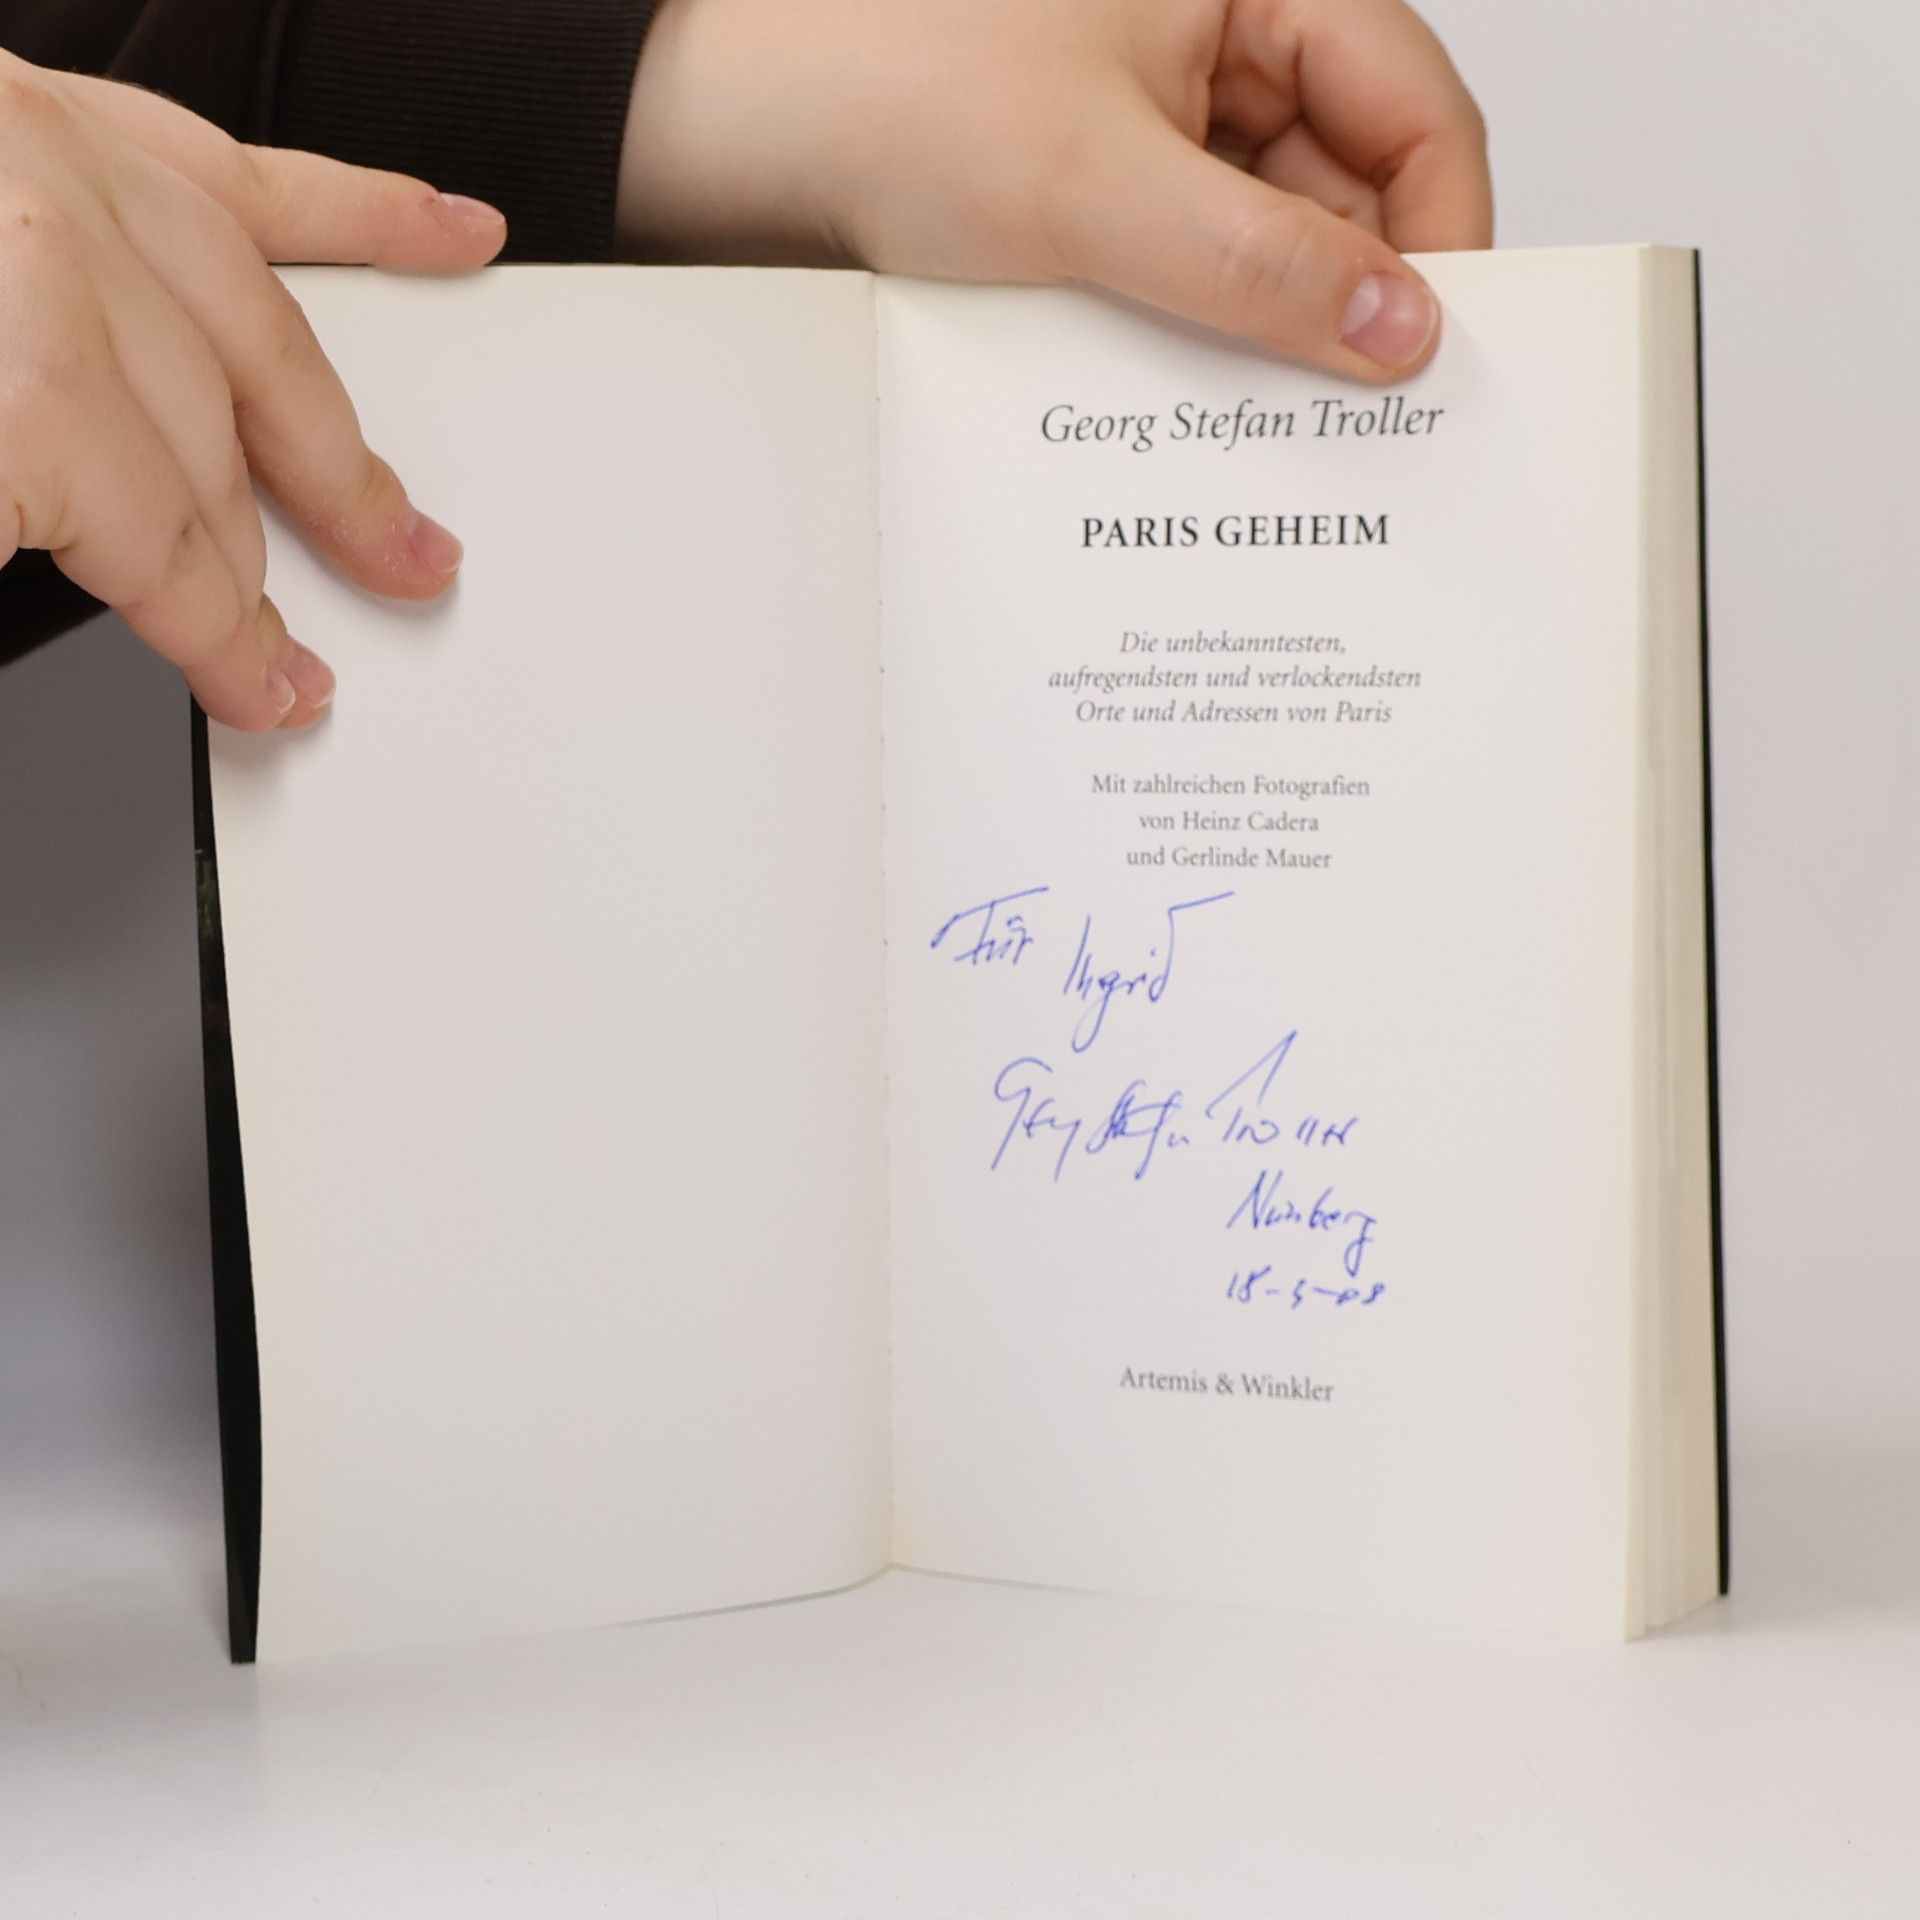 Georg Stefan Troller
PARIS GEHEIM
Die unbekanntesten,
aufregendsten und verlockendsten
Orte und Adressen von Paris
Mit zahlreichen Fotografien
von Heinz Cadera
und Gerlinde Mauer
Für Ingrid
Georg Stefan Troller
Nürnberg
Artemis & Winkler